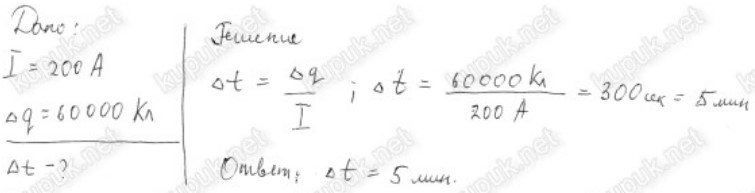 Дано:
I = 200 А
Δq = 60000 Кл
Δt - ?
Решение
Δt = Δq / I ; Δt = 60000 Кл / 200 А = 300 сек = 5 мин
Ответ: Δt = 5 мин.